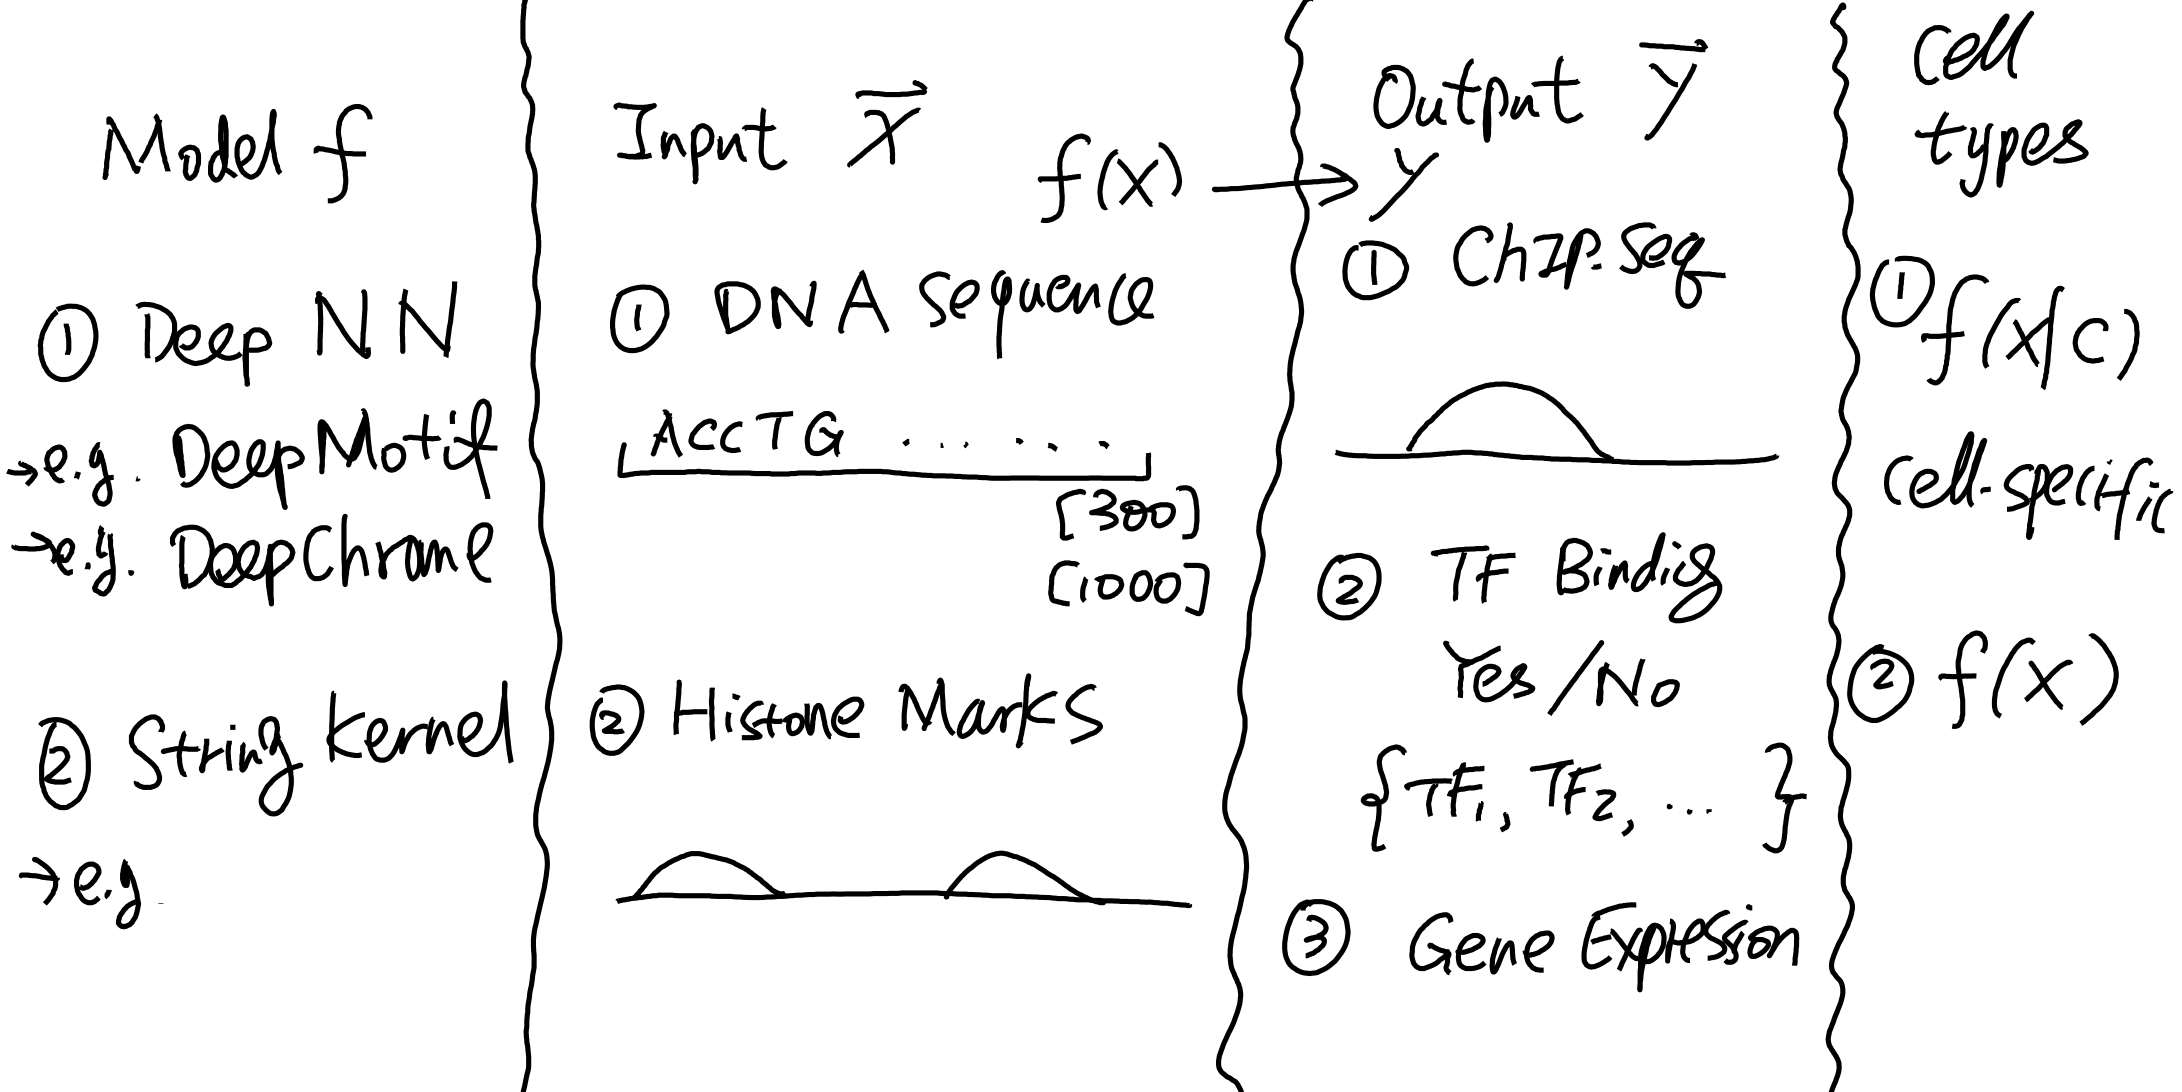 Model f
① Deep NN
→ e.g. DeepMotif
→ e.g. DeepChrome
② String Kernel
→ e.g.
Input X
f(x) →
① DNA Sequence
ACCTG ......
[300]
[1000]
② Histone Marks
Output Y
Y
① ChIP-seq
② TF Binding
Yes/No
{TF1, TF2, ... }
③ Gene Expression
Cell
types
① f(x|c)
Cell-specific
② f(x)